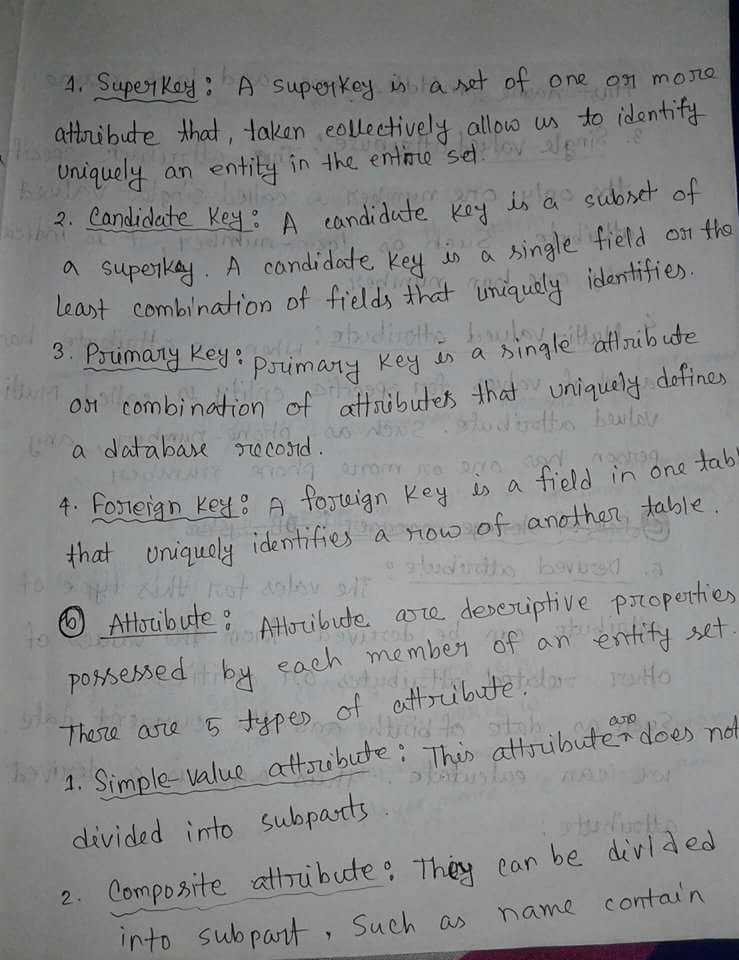 1. Superkey: A superkey is a set of one or more
attribute that, taken collectively allow us to identify
uniquely an entity in the entire set.
2. Candidate Key: A candidate key is a subset of
a superkey. A candidate key is a single field or the
least combination of fields that uniquely identifies.
3. Primary Key: primary key is a single attribute
or combination of attributes that uniquely defines
a database record.
4. Foreign Key: A foreign key is a field in one tabl
that uniquely identifies a row of another table.
(b) Attribute: Attribute are descriptive properties
possessed by each member of an entity set.
There are 5 types of attribute.
1. Simple-value attribute: This attribute are does not
divided into subparts.
2. Composite attribute: They can be divided
into subpart, Such as name contain